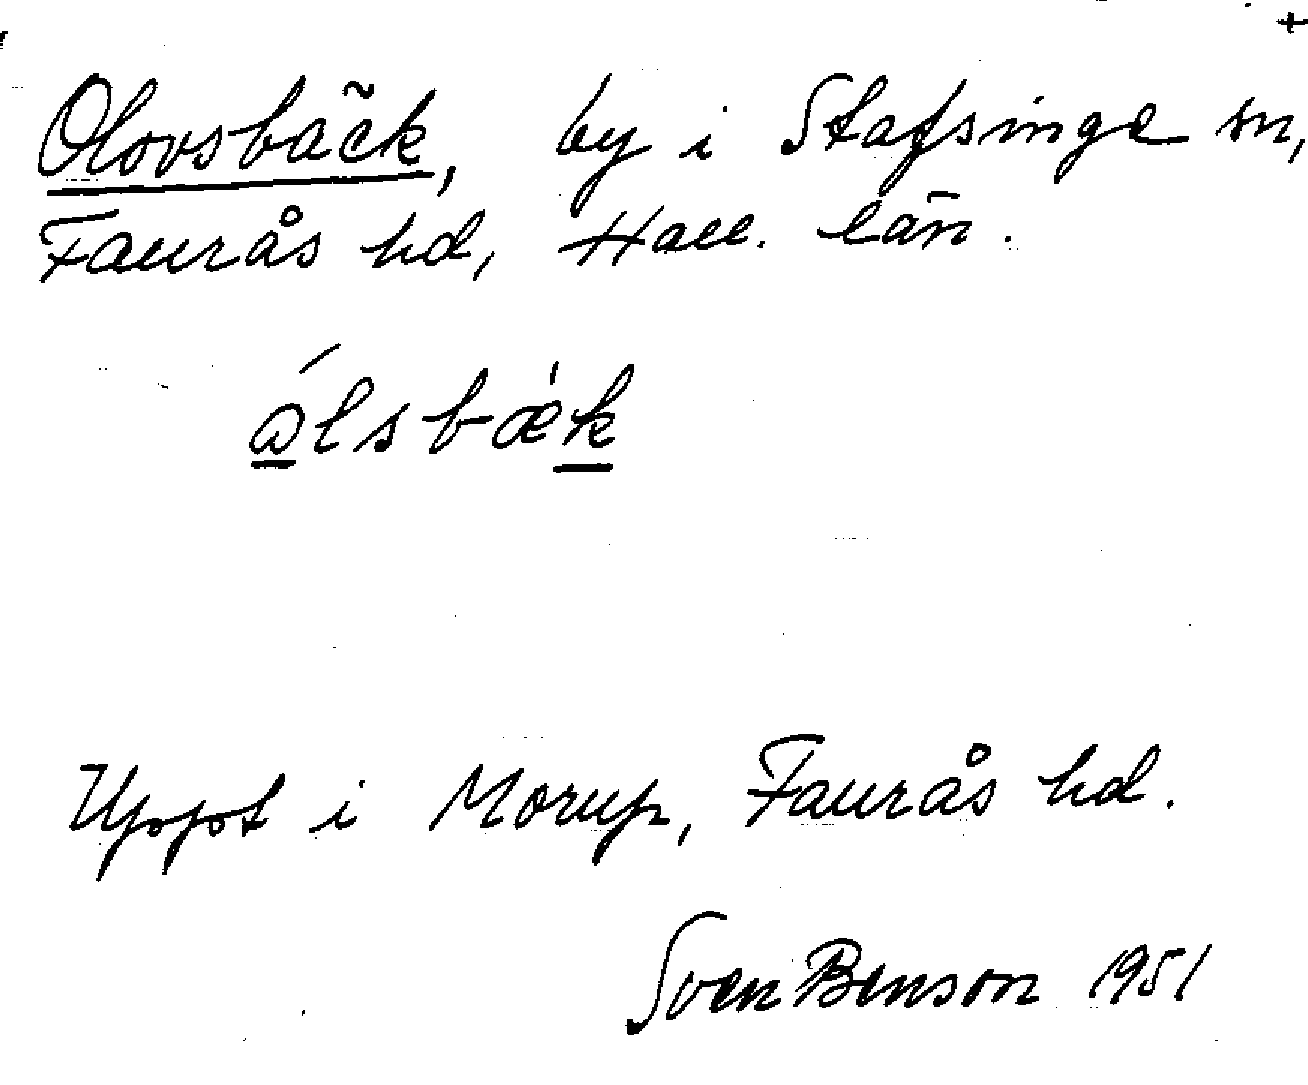 Olovsbäck, by i Stafsinge sn,
Faurås hd, Hall. län.
ålsbæk
Uppt i Morup, Faurås hd.
Sven Benson 1951